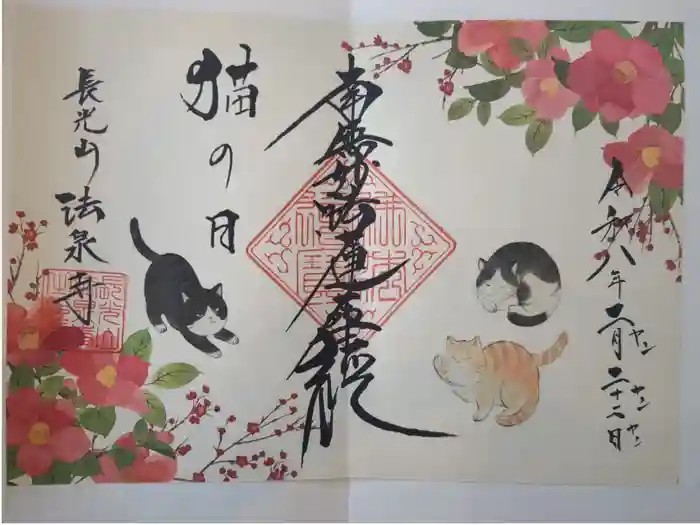 令和八年二月二十二日
ニャン ニャン ニャン
南無妙法蓮華経
猫の日
長光山 法泉寺